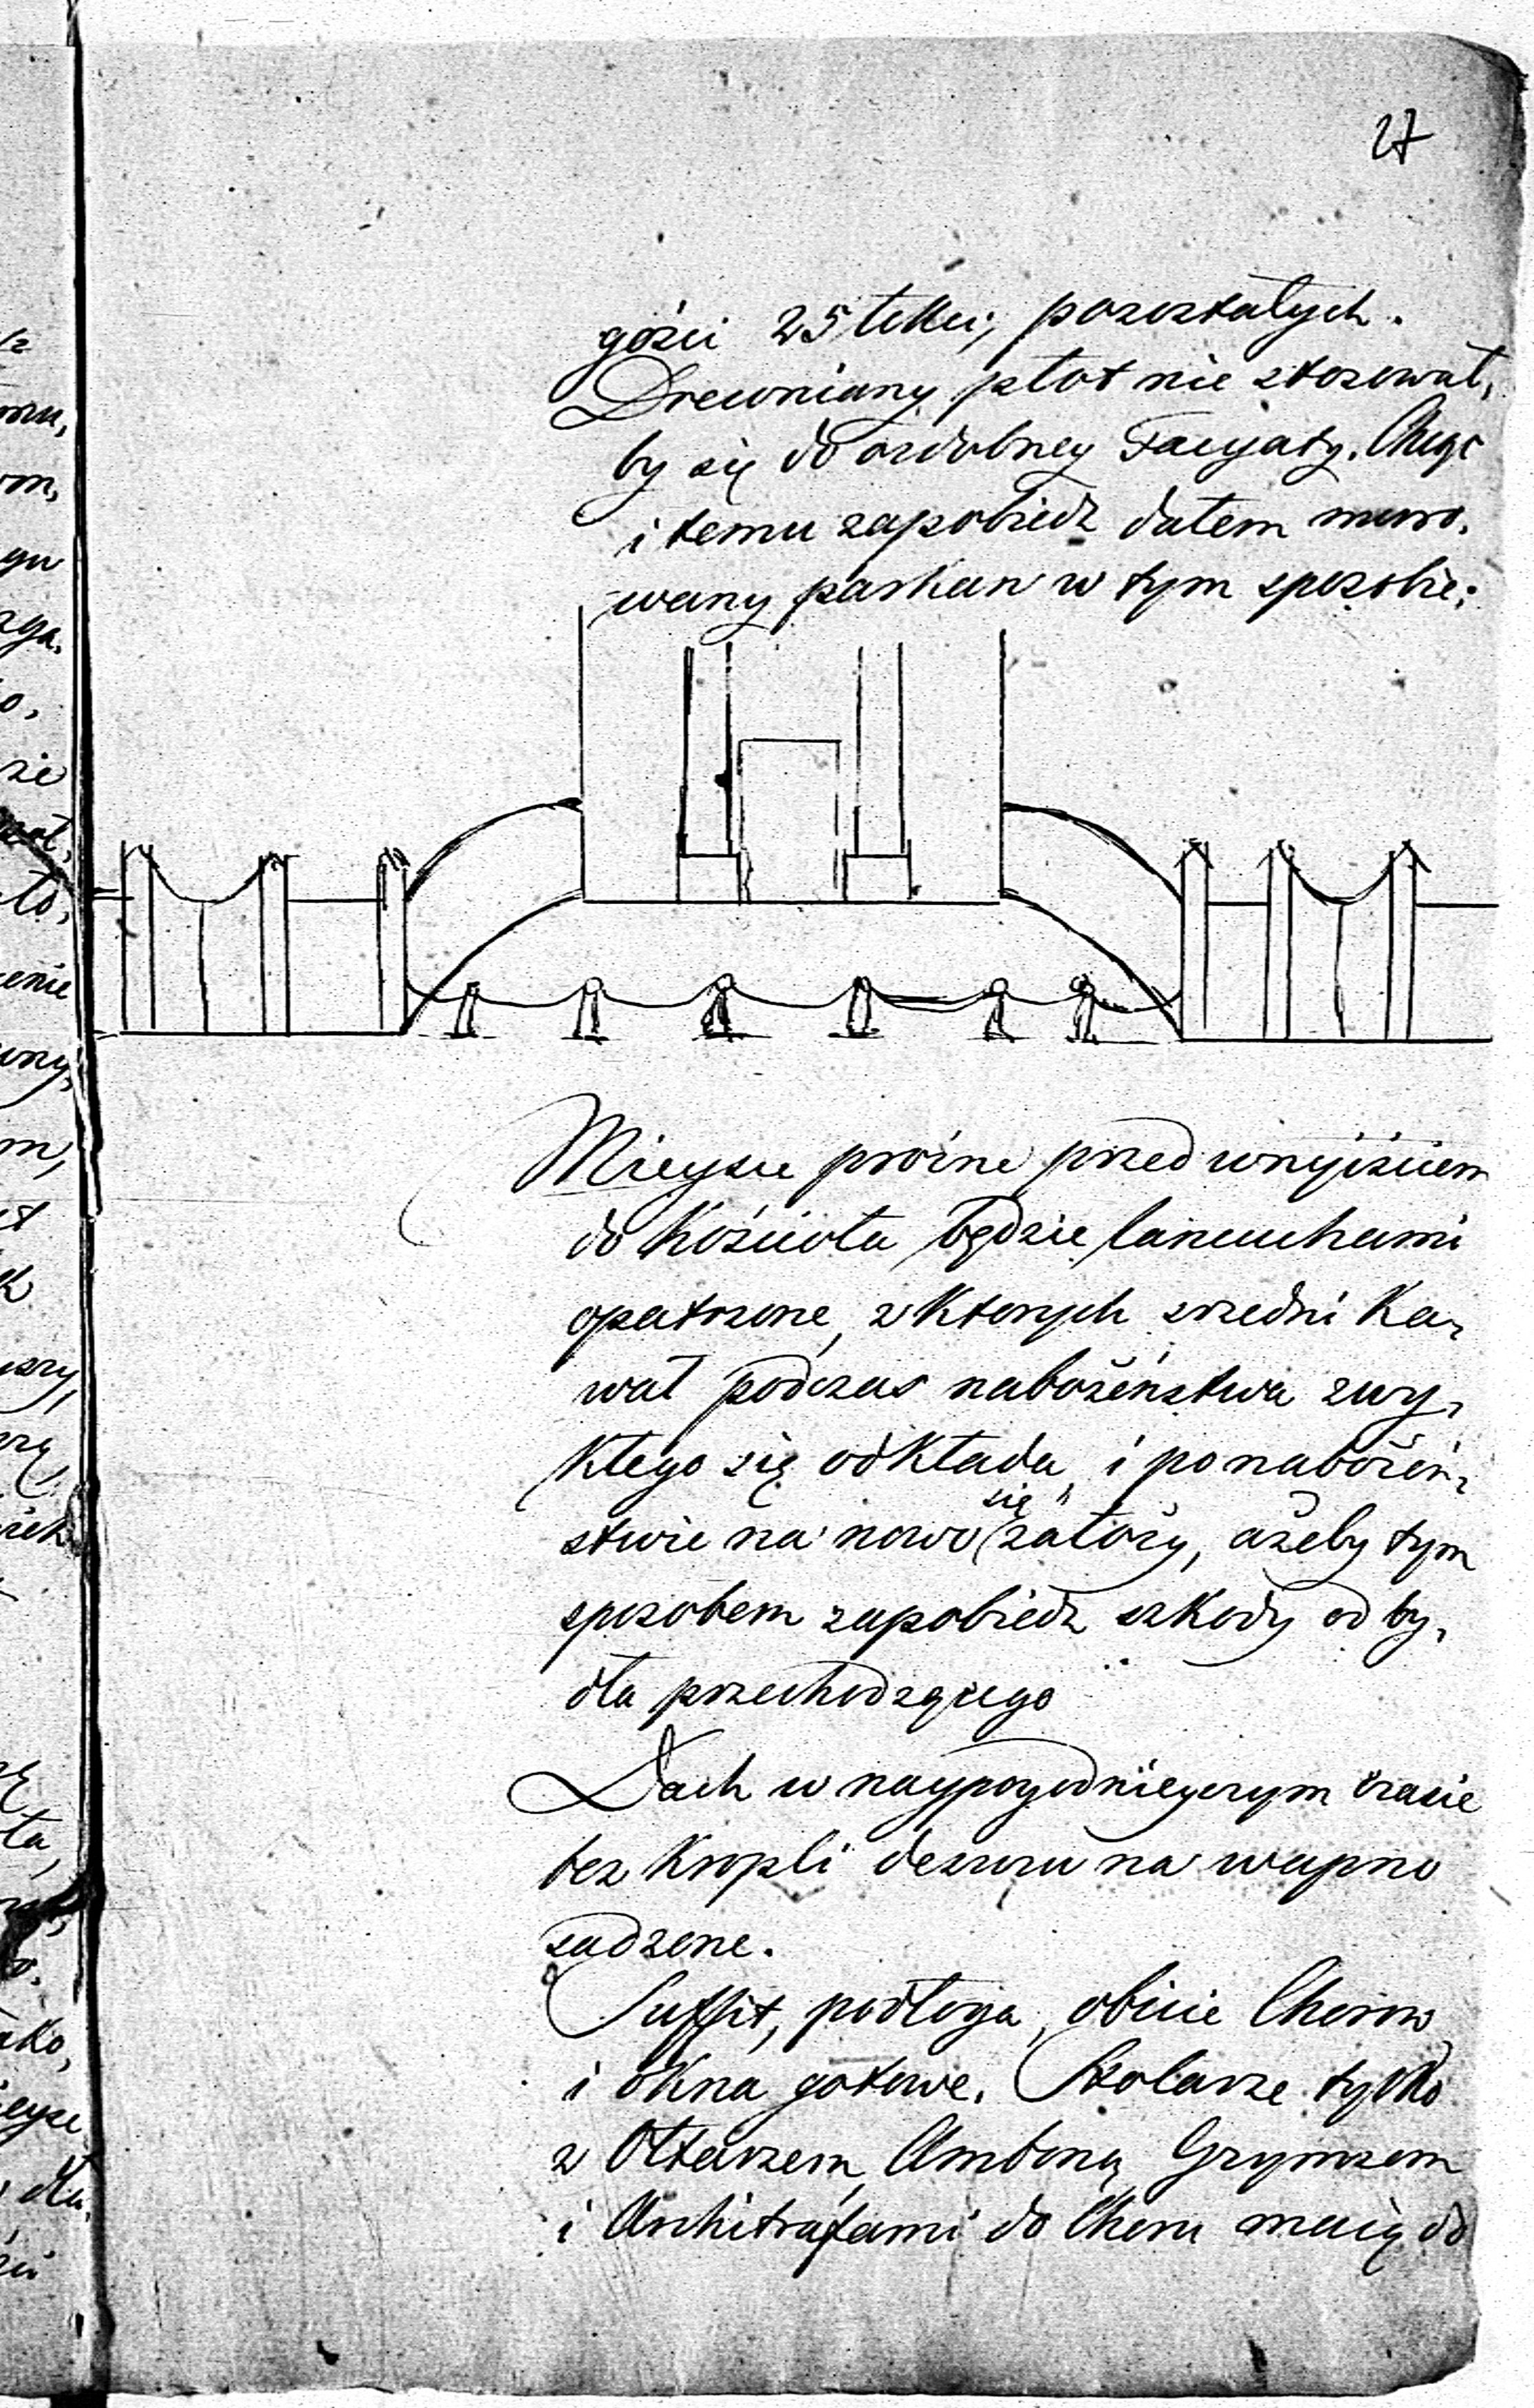 27
gości 25 łokci, pozostałych.
Drewniany płot nie stosował,
by się do ozdobney Facyaty. Chcąc
i temu zapobiedz dałem muro,
wany parkan w tym sposobie:
Mieysce prózne przed wnyiściem
do Kościoła będzie łancuchami
opatrzone, z ktorych srzedni Ka,
wał podczas nabożeństwa zwy,
kłego się odkłada, i po nabożen,
stwie na nowo się założy, ażeby tym
sposobem zapobiedz szkody od by,
dła przechodzącego
Dach w naypogodnieyszym czasie
bez kropli deszczu na wapno
sadzone.
Suffit, podłoga, obicie Chorow
i okna gotowe. Stolarze tylko
z Ołtarzem, Amboną, Gzymsem
i Architrafami do Choru maią do